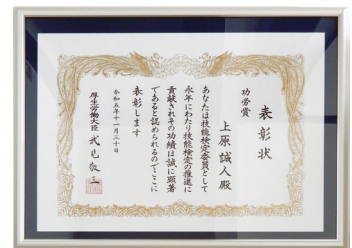 表彰状
功労賞
上原誠人殿
あなたは技能検定委員として
永年にわたり技能検定の推進に
貢献されその功績は誠に顕著
であると認められるのでここに
表彰します
令和五年十一月三十日
厚生労働大臣 武見敬三